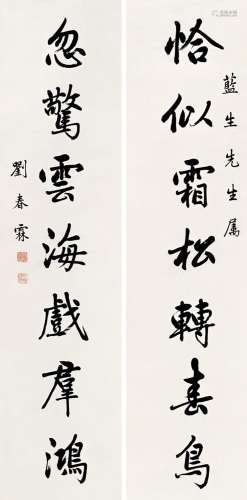 恰似霜松轉春鳥
藍生先生属
忽驚雲海戲羣鴻
劉春霖